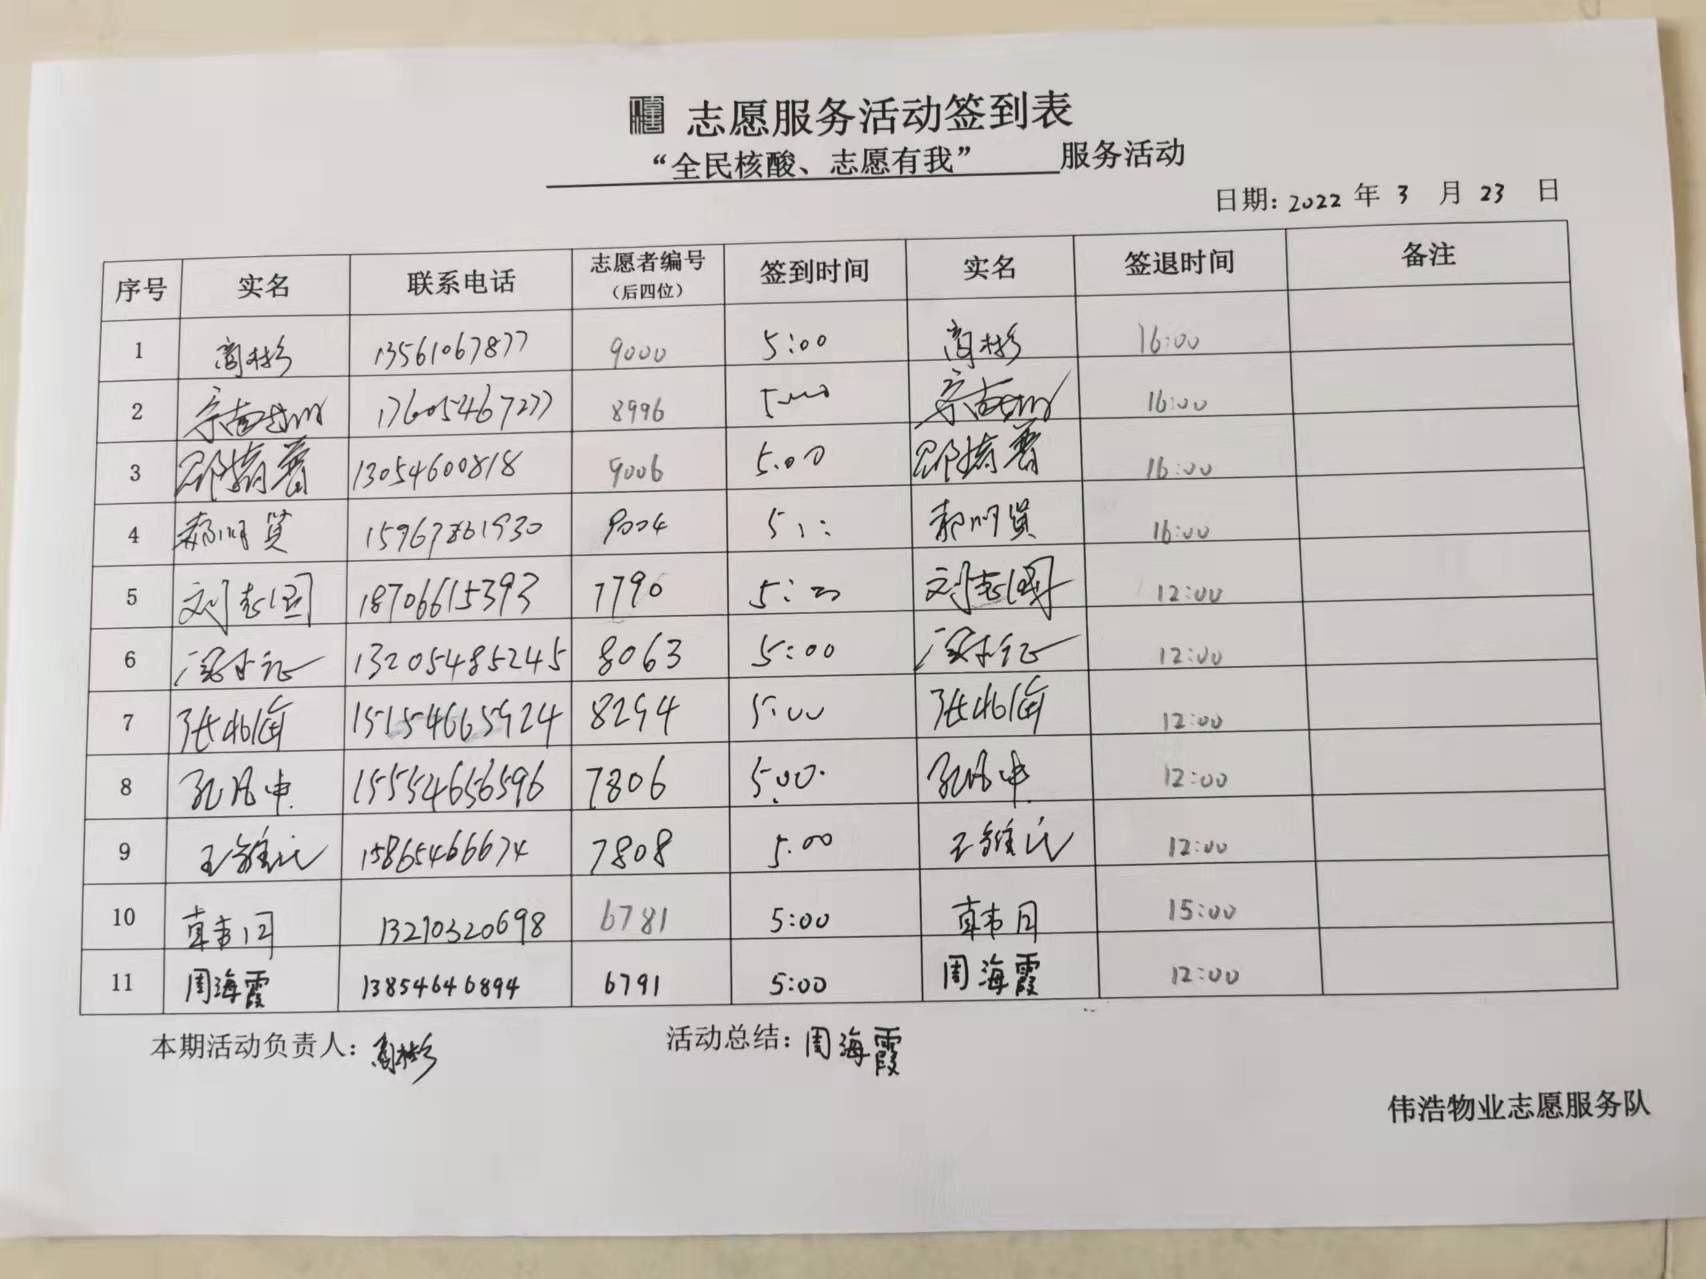 志愿服务活动签到表
“全民核酸、志愿有我” 服务活动
日期: 2022 年 3 月 23 日
序号 实名 联系电话 志愿者编号（后四位） 签到时间 实名 签退时间 备注
1 商彬 13561067877 9000 5:00 商彬 16:00
2 17605467277 8996 16:00
3 13054600818 9006 5:00 16:00
4 15967861930 9004 16:00
5 刘志国 18706615393 7790 刘志国 12:00
6 13205485245 8063 5:00 12:00
7 15154665924 8294 5:00 12:00
8 孔凡申 15554656596 7806 5:00 孔凡申 12:00
9 15865466674 7808 5:00 12:00
10 13210320698 6781 5:00 15:00
11 周海霞 13854646894 6791 5:00 周海霞 12:00
本期活动负责人: 商彬 活动总结: 周海霞
伟浩物业志愿服务队